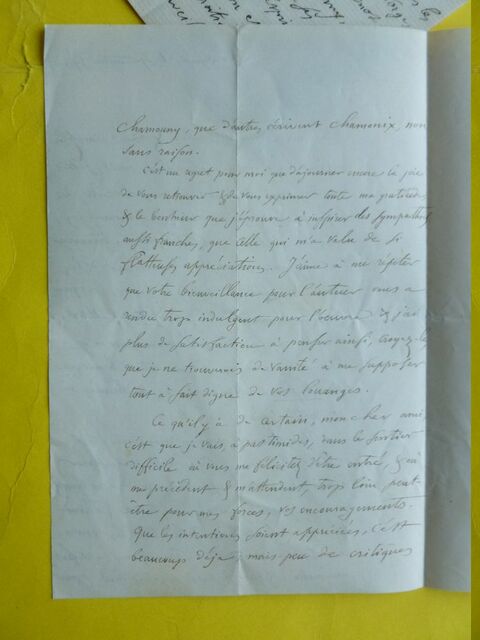 Chamouny, que d'autres écrivent Chamonix, non
sans raison.
C'est un regret pour moi que d'ajourner encore la joie
de vous retrouver & de vous exprimer toute ma gratitude
& le bonheur que j'éprouve à inspirer des sympathies
aussi franches, que celle qui m'a valu de si
flatteuses appréciations. J'aime à me répéter
que votre bienveillance pour l'auteur vous a
rendu trop indulgent pour l'oeuvre & j'ai
plus de satisfaction à penser ainsi, croyez-le
que je ne trouverais de vanité à me supposer
tout à fait digne de vos louanges.
Ce qu'il y a de certain, mon cher ami,
c'est que je vais, à pas timides, dans le sentier
difficile où vous me félicitez d'être entré, & où
me précèdent & m'attendent, trop loin peut-
être pour mes forces, vos encouragements.
Que les intentions soient appréciées, c'est
beaucoup déjà; mais peu de critiques